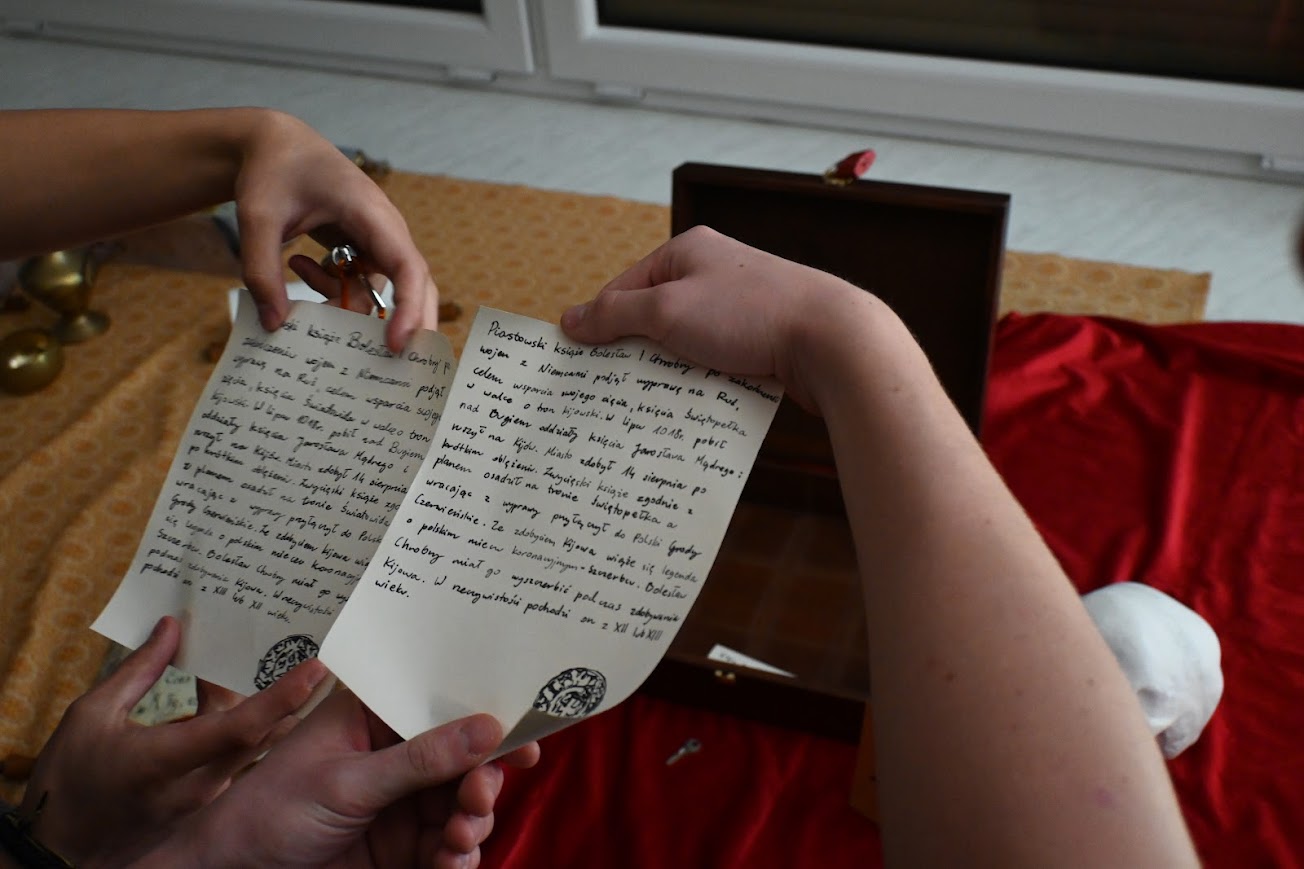 ski książę Bolesław I Chrobry p
zakończeniu wojen z Niemcami podjął
wyprawę na Ruś, celem wsparcia swojego
zięcia, księcia Światowida w walce o tron
kijowski. W lipcu 1018r. pobił nad Bugiem
oddziały księcia Jarosława Mądrego i
na Kijów. Miasto zdobył 14 sierpnia
po krótkim oblężeniu. Zwycięski książę zgo
z planem osadził na tronie Światowida
wracając z wyprawy przyłączył do Polski
Grody Czerwieńskie. Ze zdobyciem Kijowa wią
się legenda o polskim mieczu koronacyj
Szczerbcu. Bolesław Chrobry miał go wy
podczas zdobywania Kijowa. W rzeczywistości
pochodzi on z XII lub XIII wieku.
Piastowski książę Bolesław I Chrobry po zakończeniu
wojen z Niemcami podjął wyprawę na Ruś,
celem wsparcia swojego zięcia, księcia Świętopełka
w walce o tron kijowski. W lipcu 1018r. pobił
nad Bugiem oddziały księcia Jarosława Mądrego i
na Kijów. Miasto zdobył 14 sierpnia po
krótkim oblężeniu. Zwycięski książę zgodnie z
planem osadził na tronie Świętopełka a
wracając z wyprawy przyłączył do Polski Grody
Czerwieńskie. Ze zdobyciem Kijowa wiąże się legenda
o polskim mieczu koronacyjnym - Szczerbcu. Bolesław
Chrobry miał go wyszczerbić podczas zdobywania
Kijowa. W rzeczywistości pochodzi on z XII lub XIII
wieku.